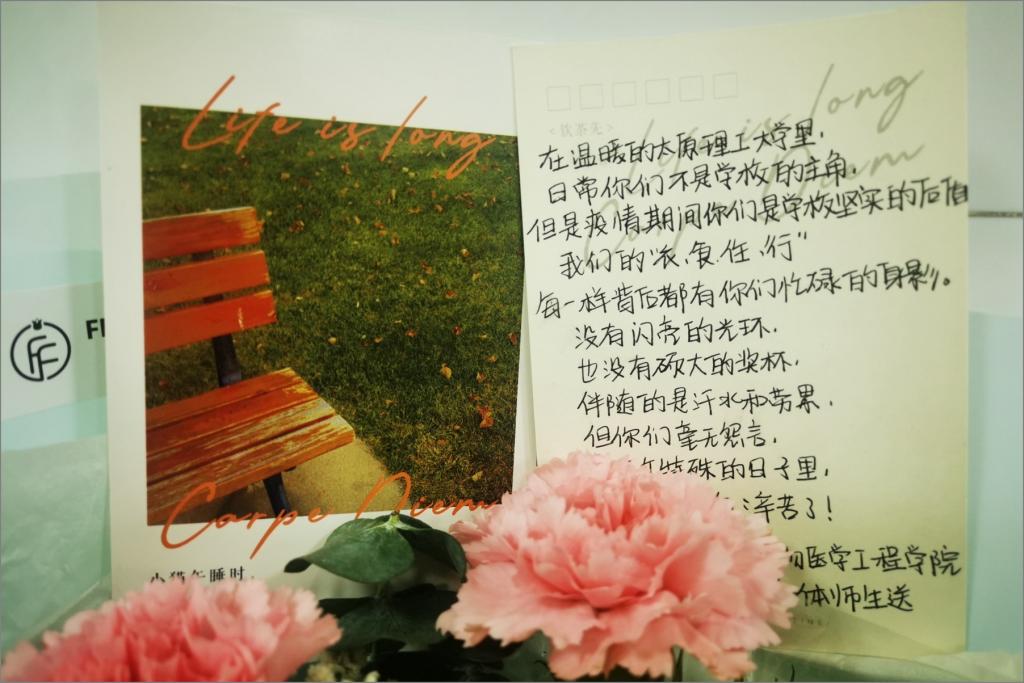 Life is long
Carpe Diem
小猫午睡时,
FF
<饮茶先>
Life is long
在温暖的太原理工大学里,
日常你们不是学校的主角,
但是疫情期间你们是学校坚实的后盾
我们的"衣、食、住、行"
每一样背后都有你们忙碌的身影。
没有闪亮的光环,
也没有硕大的奖杯,
伴随的是汗水和劳累,
但你们毫无怨言,
特殊的日子里,
辛苦了!
医学工程学院
体师生送